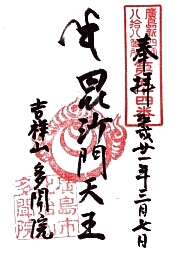 奉拝 平成廿一年三月七日
廣島新四國
八拾八ヶ所
第四番
毘沙門天王
吉祥山 多聞院
廣島市
多聞院